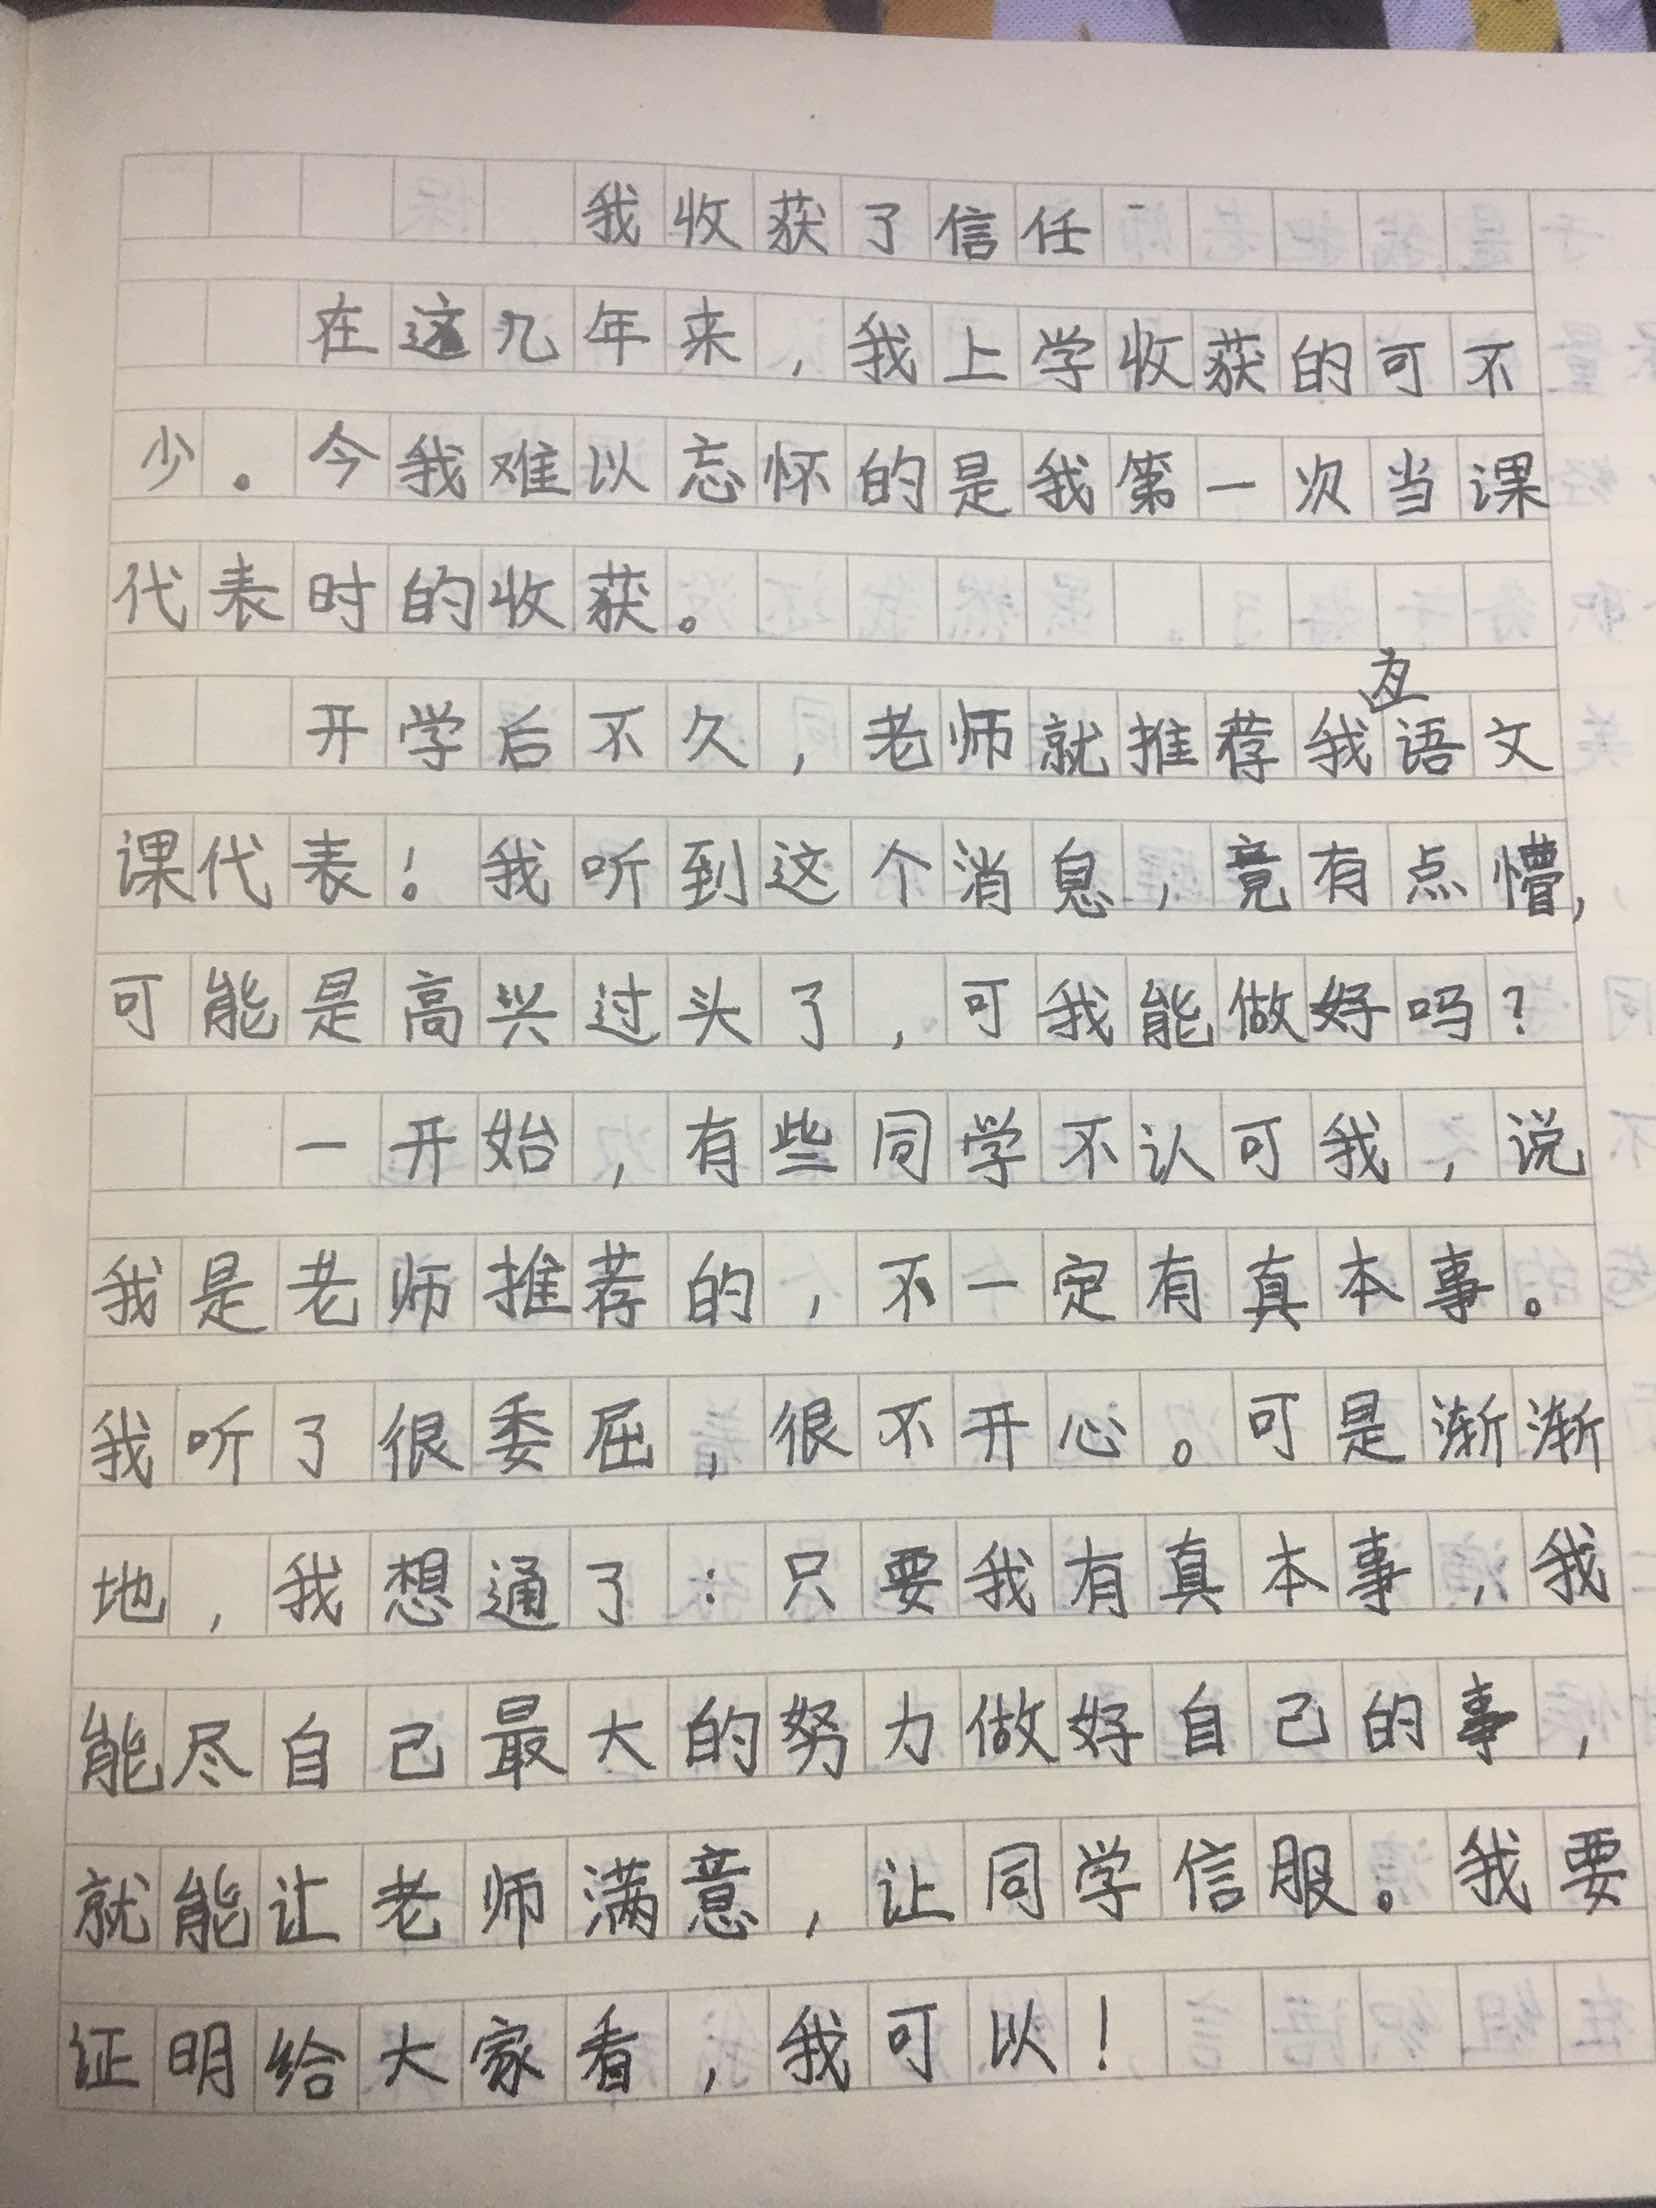 我收获了信任
在这几年来，我上学收获的可不
少。今我难以忘怀的是我第一次当课
代表时的收获。
开学后不久，老师就推荐我语文
课代表！我听到这个消息，竟有点懵，
可能是高兴过头了，可我能做好吗？
一开始，有些同学不认可我，说
我是老师推荐的，不一定有真本事。
我听了很委屈，很不开心。可是渐渐
地，我想通了：只要我有真本事，我
能尽自己最大的努力做好自己的事，
就能让老师满意，让同学信服。我要
证明给大家看，我可以！